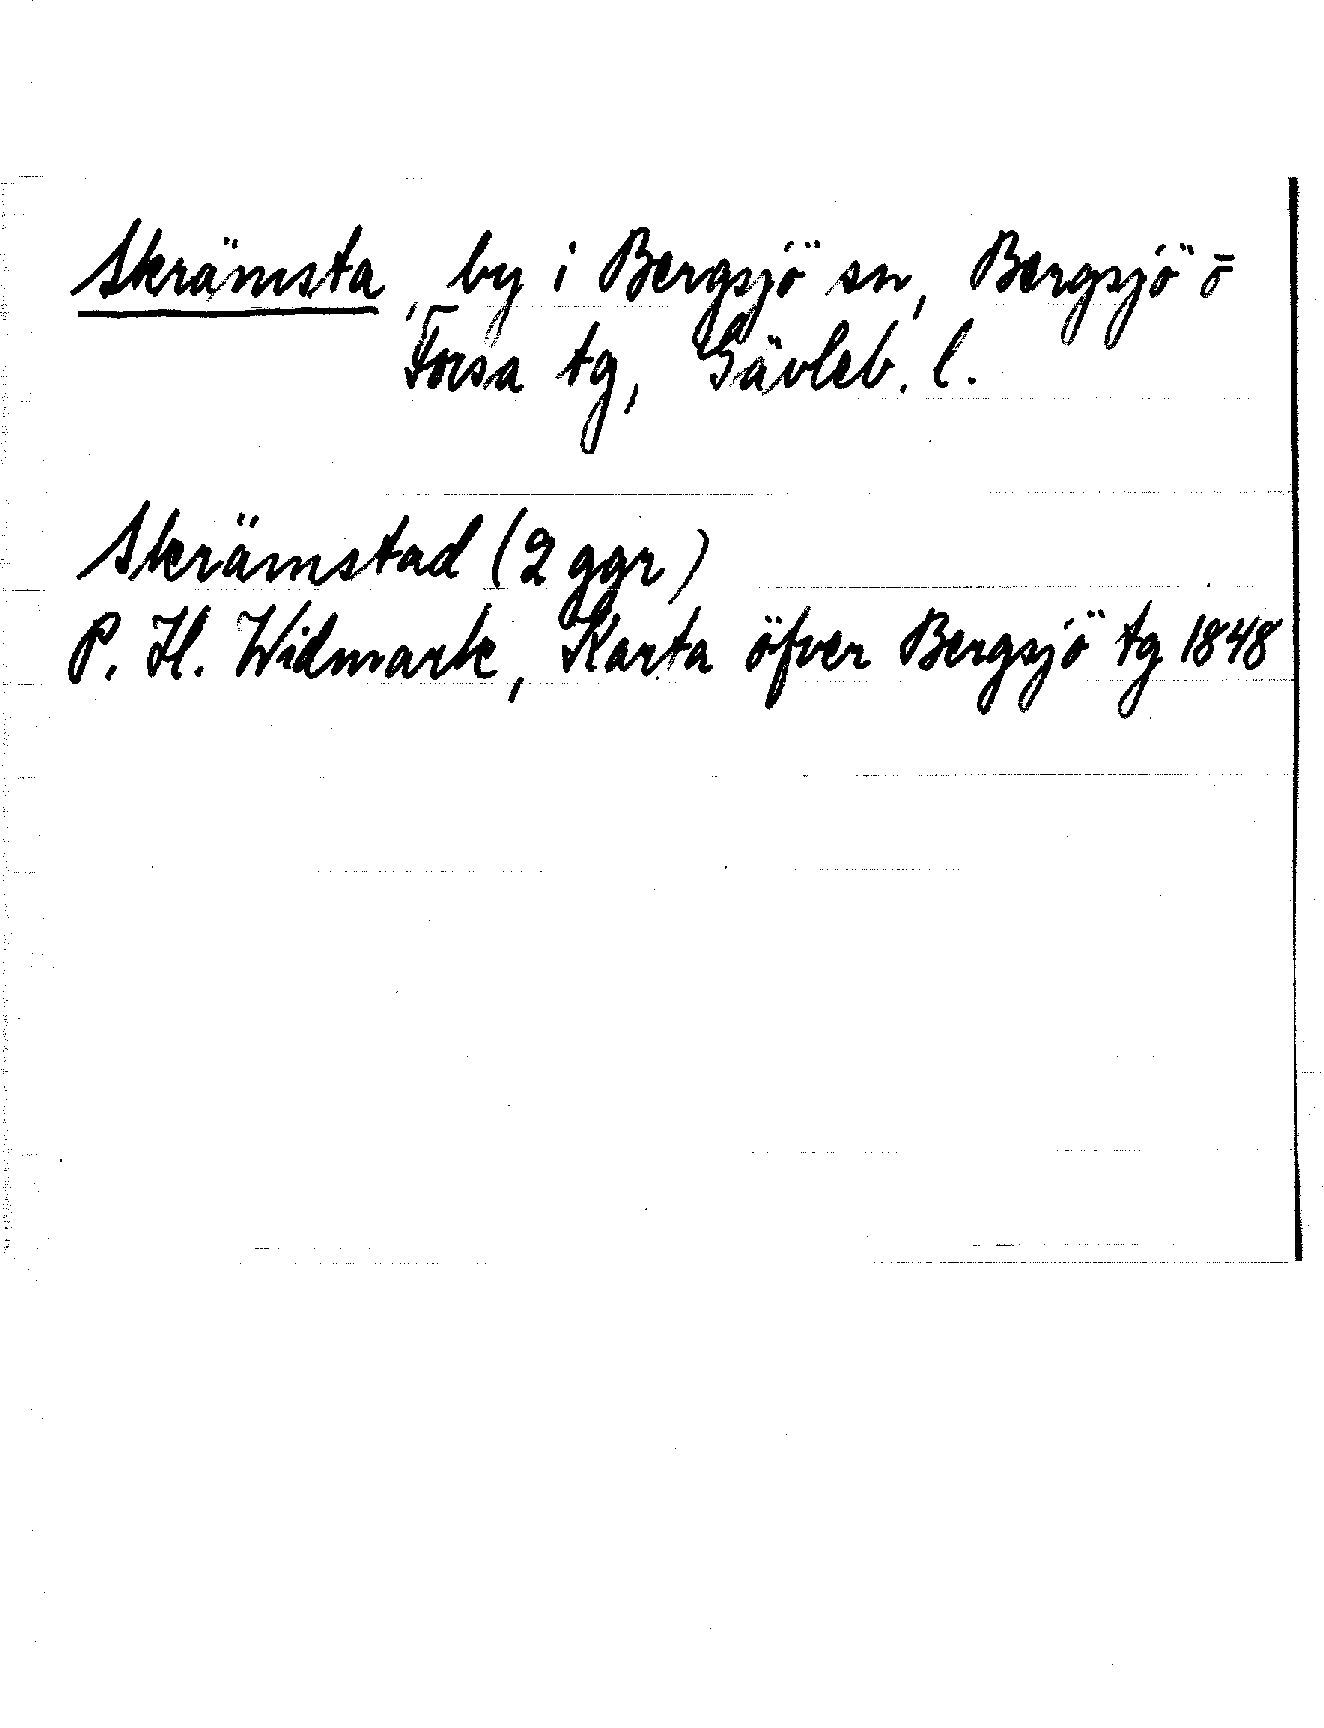 Skrämsta, by i Bergsjö sn, Bergsjö o
Forsa tg, Gävleb. l.
Skrämstad (2 ggr)
P. H. Widmark, Karta öfver Bergsjö tg 1848